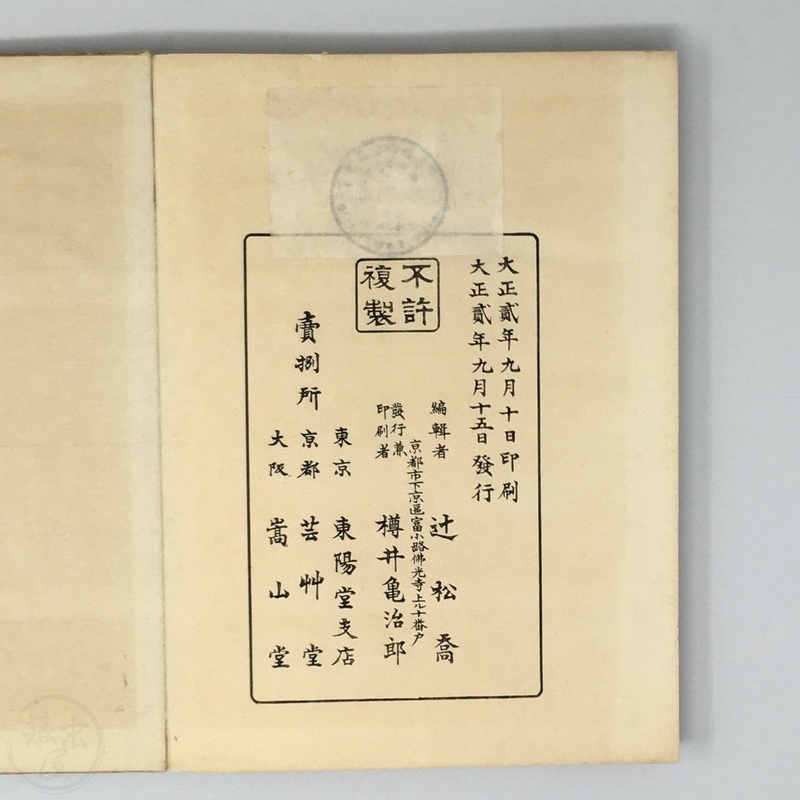 大正貳年九月十日印刷
大正貳年九月十五日發行
不許
複製
編輯者 辻松喬
京都市下京區富小路佛光寺上ル十番戸
發行兼
印刷者 樽井亀治郎
賣捌所
東京 東陽堂支店
京都 芸艸堂
大阪 嵩山堂
幕末屋